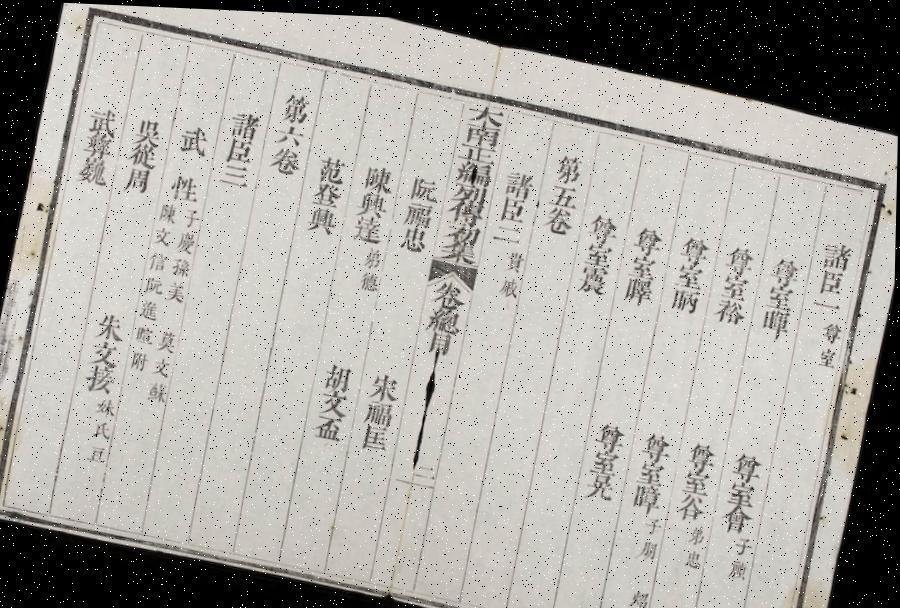 諸臣一 尊室
尊室暉
尊室裕 尊室會 子
尊室昞 尊室谷 弟忠
尊室曎 尊室暲 子
尊室宸 尊室晃
第五卷
諸臣二
大南正編列傳初集 卷總目 二
阮福忠
陳興達 弟德 宋福匡
范登興 胡文盃
第六卷
諸臣三
武性 子慶 孫美 莫文蘇 陳文信 阮進暄附
吳從周
武彝巍 朱文接 妹氏豆